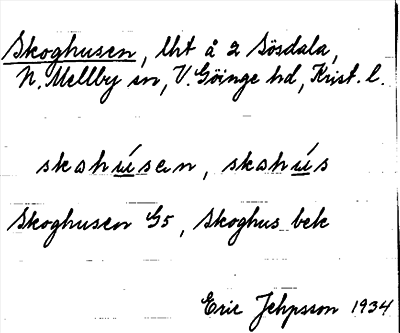 Skoghusen, lht å 2 Sösdala,
N. Mellby sn, V. Göinge hd, Krist. l.
skɑhúsen, skɑhús
Skoghusen G5, Skoghus bek
Eric Jehpsson 1934